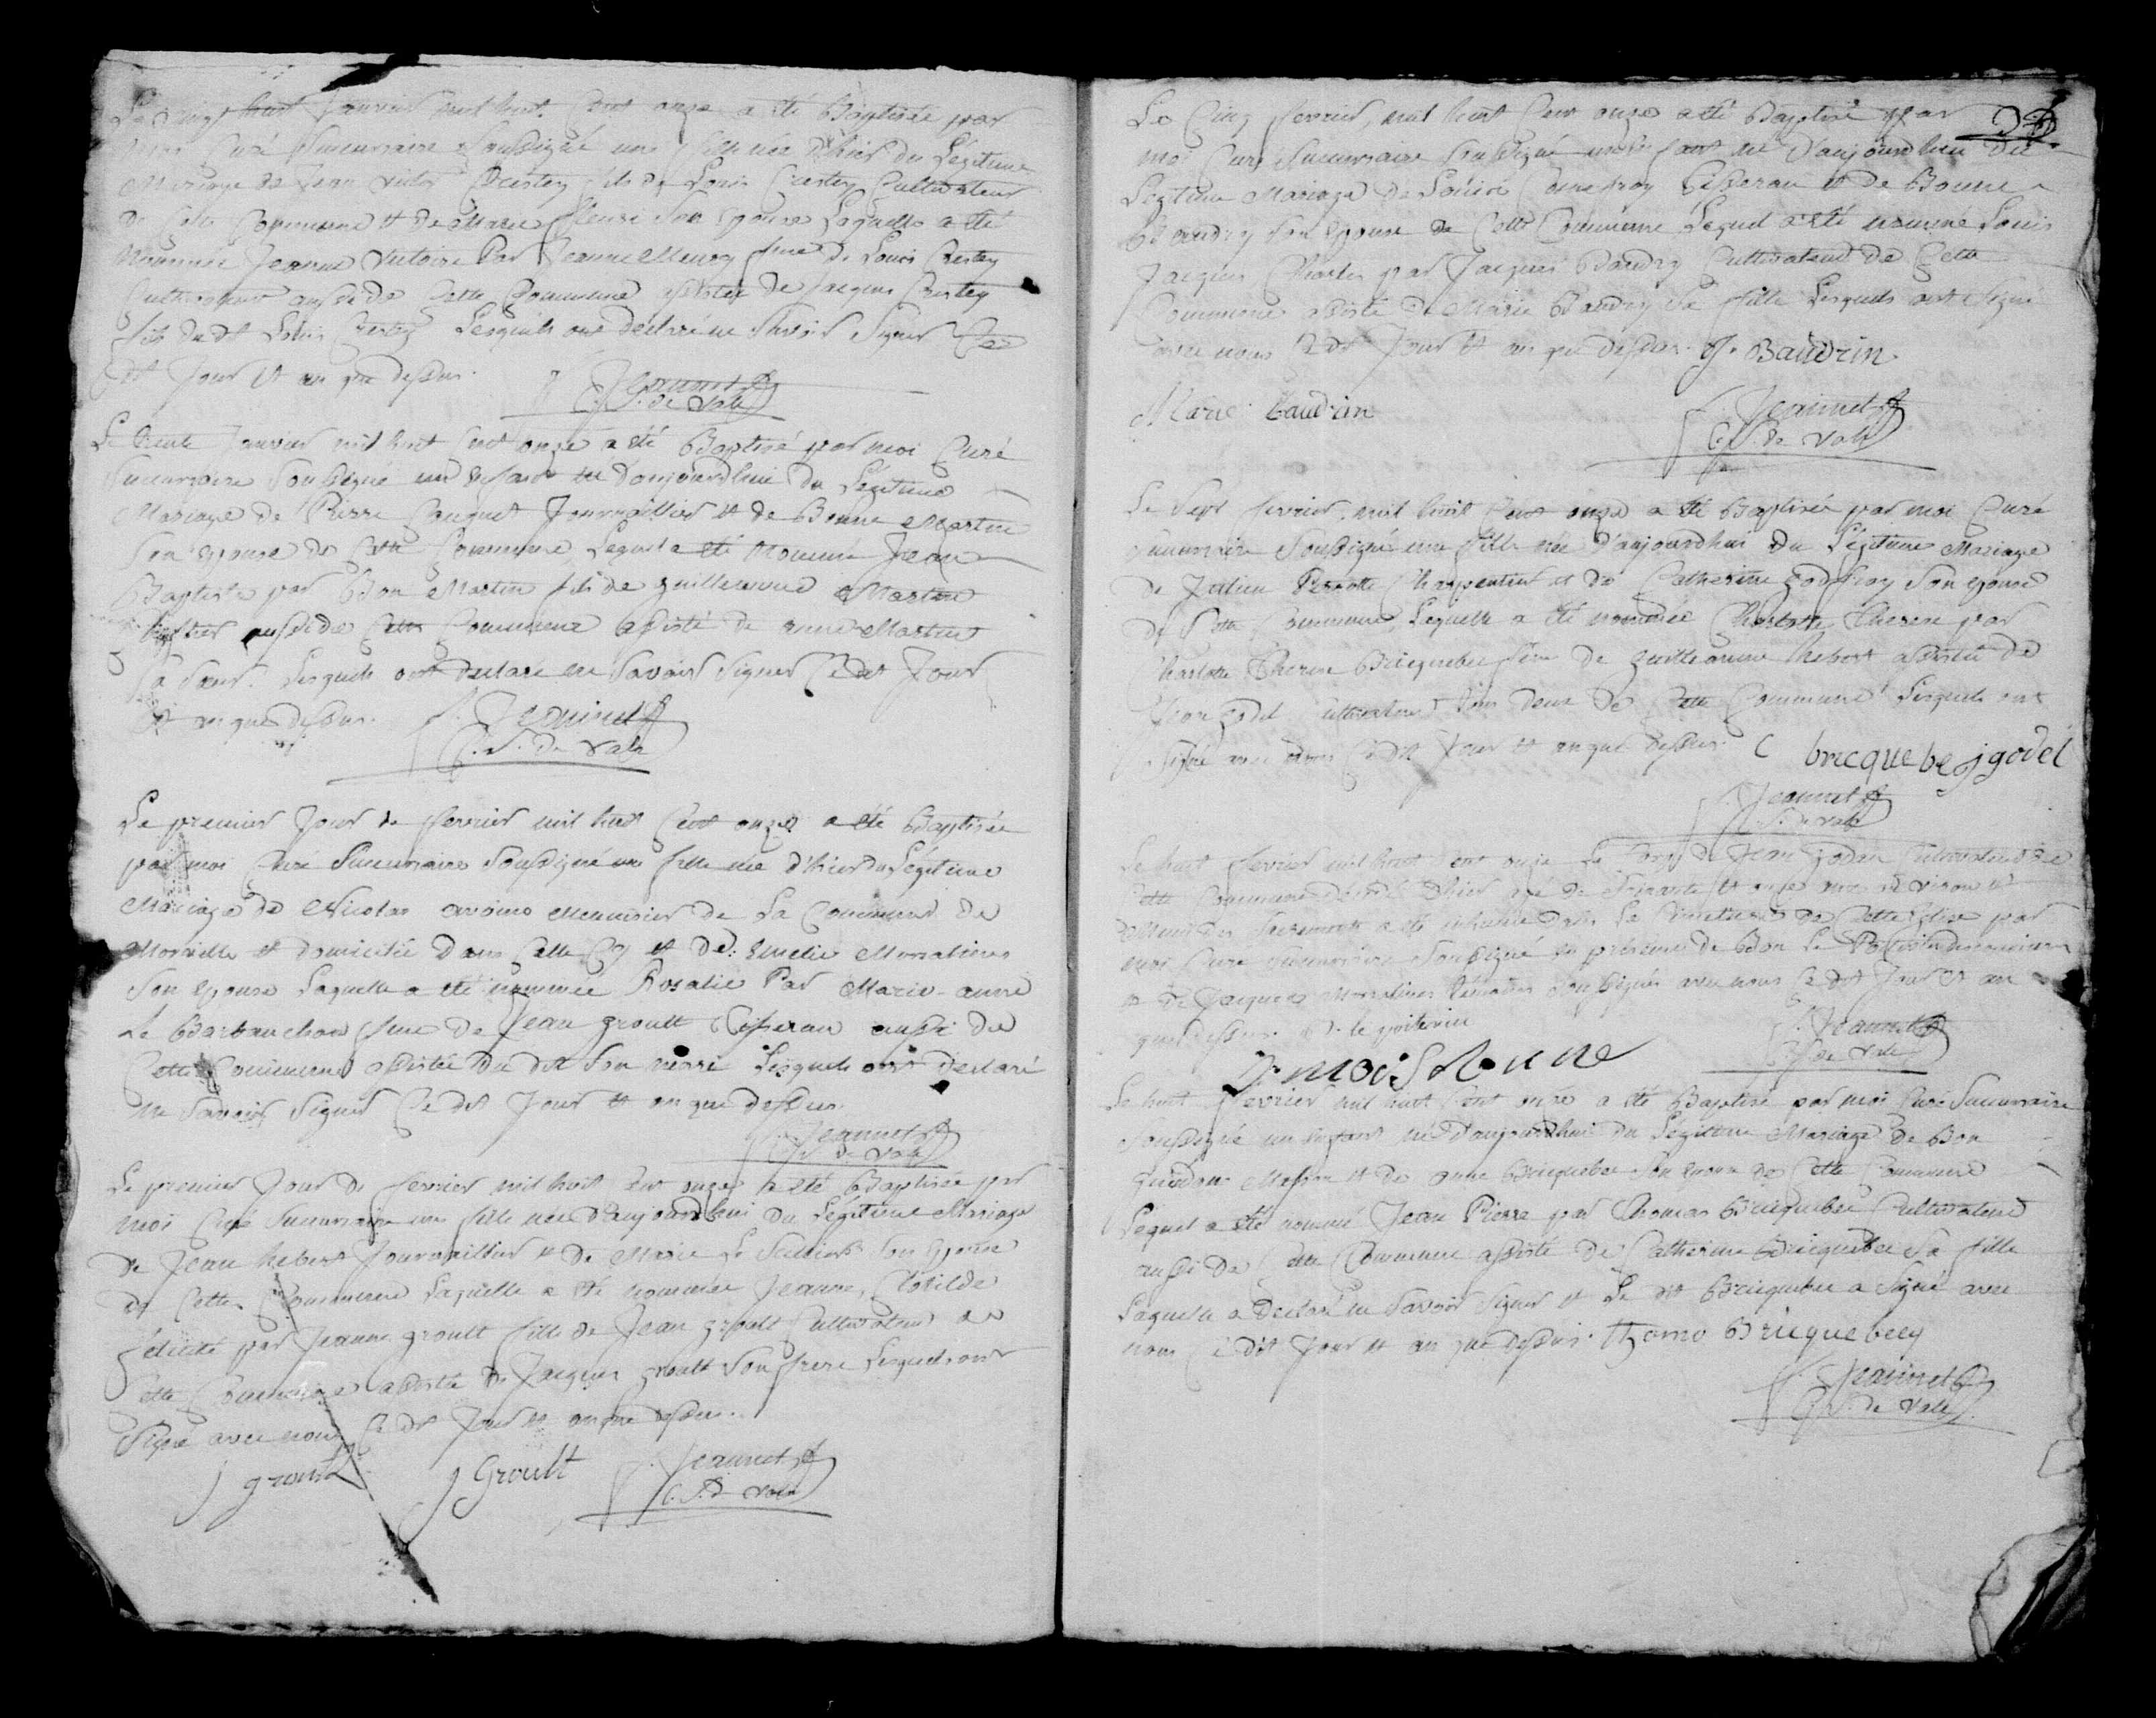 Le vingt huit Janvier mil huit Cent onze a été Baptisée par
moi Curé Succursaire Soussigné une fille née d'hier du Légitime
Mariage de Jean victor Crestey fils de Louis Crestey Cultivateur
de Cette Commune et de Marie fleuri Son epouse Laquelle a été
Nommée Jeanne Victoire Par Jeanne Menoy fme de Louis Crestey
Cultivateur aussi de Cette Commune assistée de Jacques Crestey
fils du dt Louis Crestey Lesquels ont declaré ne Savoir Signer Ce
dt Jour et an que dessus.
Jeannet
C. S. de Vale
Le trente Janvier mil huit Cent onze a été Baptisé par moi Curé
Succursaire Soussigné un enfant né d'aujourdhui du Légitime
Mariage de Pierre Couquet Journaillier et de Bonne Martin
Son epouse de Cette Commune Lequel a été Nommé Jean
Baptiste par Bon Martin fils de guillaume Martin
aussi de Cette Commune assisté de anne Martin
Sa Sœur. Lesquels ont declaré ne Savoir Signer Ce dt Jour
et an que dessus.
Jeannet
C. S. de Vale
Le premier Jour de fevrier mil huit Cent onze a été Baptisée
par moi Curé Succursaire Soussigné une fille née d'hier du Légitime
Mariage de Nicolas avoine Menuisier de La Commune de
Morville et domicilié Dans Cette Cy et de Emelie Morsalines
Son epouse Laquelle a été nommée Rosalie Par Marie-anne
Le Barbanchon fme de Jean groult Tisseran aussi de
Cette Commune assistée du dit Son mari Lesquels ont declaré
ne Savoir Signer Ce dt Jour et an que dessus.
Jeannet
C. S. de Vale
Le premier Jour de fevrier mil huit Cent onze a été Baptisée par
moi Curé Succursaire une fille née d'aujourdhui du Légitime Mariage
de Jean hebert Journaillier et de Marie Le Sellier Son Epouse
de Cette Commune Laquelle a été nommée Jeanne, Clotilde
félicité par Jeanne groult fille de Jean groult Cultivateur de
Cette Commune assistée de Jacques groult Son frere Lesquels ont
Signé avec nous Ce dt Jour et an que dessus.
J groult J Groult Jeannet
C. S. de Vale
Le Cinq fevrier, mil huit Cent onze a été Baptisé par
moi Curé Succursaire Soussigné un enfant né d'aujourdhui du
Légitime Mariage de Louis Tisseran et de Bonne
Baudry Son epouse de Cette Commune Lequel a été nommé Louis
Jacques Charles par Jacques Baudry Cultivateur de Cette
Commune assisté de Marie Baudry Sa fille Lesquels ont Signé
avec nous Ce dt Jour et an que dessus. J. Baudrin
Marie Baudrin
Jeannet
C. S. de Vale
Le Sept fevrier, mil huit Cent onze a été Baptisée par moi Curé
Succursaire Soussigné une fille née d'aujourdhui du Légitime Mariage
de Julien Perrotte Charpentier et de Catherine godfroy Son epouse
de Cette Commune, Laquelle a été nommée Charlotte Therese par
Charlotte Therese Bricquebec fme de guillaume hebert assistée de
Jean godel Cultivateur tous deux de Cette Commune Lesquels ont
Signé avec nous Ce dt Jour et an que dessus. C bricquebeq j godel
Jeannet
C. S. de Vale
Le huit fevrier mil huit Cent onze Le Corps de Jean godel Cultivateur de
Cette Commune décédé d'hier agé de Soixante et onze ans et
Muni des Sacrements a été inhumé dans Le Cimetiere de Cette Eglise par
moi Curé Succursaire Soussigné en présence de Bon Le Poitevin
et de Jacques Morsalines témoins Soussignés avec nous Ce dt Jour et an
que dessus. B. le poitevin
Jeannet
C. S. de Vale
Le huit fevrier mil huit Cent onze a été Baptisé par moi Curé Succursaire
Soussigné un enfant né d'aujourdhui du Légitime Mariage de Bon
Masson et de anne Bricquebec Son epouse de Cette Commune
Lequel a été nommé Jean Pierre par Thomas Bricquebec Cultivateur
aussi de Cette Commune assisté de Catherine Bricquebec Sa fille
Laquelle a declaré ne Savoir Signer et Le dit Bricquebec a Signé avec
nous Ce dit Jour et an que dessus. thomo Bricquebecq
Jeannet
C. S. de Vale